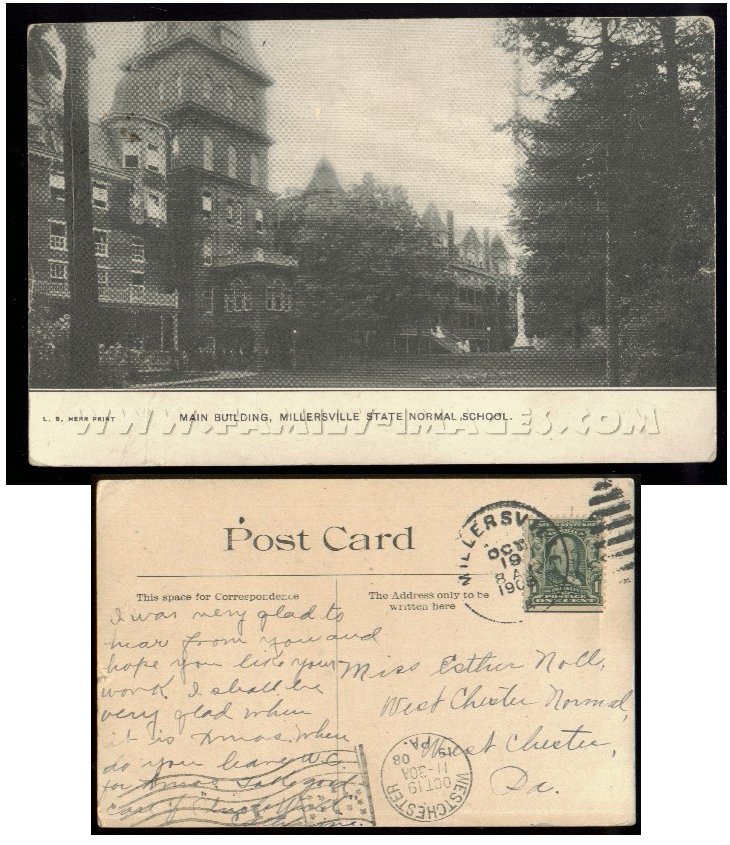 L. B. HERR PRINT
MAIN BUILDING, MILLERSVILLE STATE NORMAL SCHOOL.
WWW.FAMILY-IMAGES.COM
Post Card
This space for Correspondence
The Address only to be
written here
MILLERSV
OCT
19
8 A
190
POSTAGE
ONE CENT
I was very glad to
hear from you and
hope you like your
work. I shall be
very glad when
it is Xmas. When
do you leave W.C.
for Xmas. Take good
care of
Miss Esther Noll,
West Chester Normal,
West Chester,
Pa.
WESTCHESTER
OCT 19
11-30A
1908
PA.